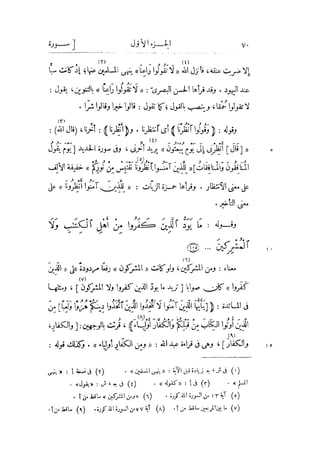 ٧٠ الجـزء الأول [ سـورة
إلا ضربت عنقه، فأنزل الله « لَا تَقُولُوا رَاعِنَا » ينهى المسلمين عنها؛ إذ كانت سبًّا
عند اليهود . وقد قرأها الحسن البصرىّ : « لَا تَقُولُوا رَاعِنًا » بالتنوين، يقول :
لا تقولوا حُمْقا، وينصب بالقول؛ كما تقول : قالوا خيرا وقالوا شرًّا .
وقوله : ﴿ وَقُولُوا ٱنْظُرْنَا ﴾ أى ٱنتظرنا . و﴿ أَنْظِرْنا ﴾ : أخّرنا، (قال الله) :
« [ قَالَ ] أَنْظِرْنِى إِلَى يَوْمِ يُبْعَثُونَ » يريد أخرنى، وفى سورة الحديد [ يَوْمَ يَقُولُ
الْمُنَافِقُونَ وَالْمُنَافِقَاتُ ] « لِلَّذِينَ آمَنُوا ٱنْظُرُونَا نَقْتَبِسْ مِنْ نُورِكُمْ » خفيفة الألف
على معنى الانتظار . وقرأها حمزة الزيات : « لِلَّذِينَ آمَنُوا أَنْظِرُونَا » على
معنى التأخير .
وقـــوله : مَا يَوَدُّ ٱلَّذِينَ كَفَرُوا مِنْ أَهْلِ ٱلْكِتَٰبِ وَلَا
ٱلْمُشْرِكِينَ ... ﴿١٠٥﴾
معناه : ومن المشركين، ولو كانت « المشركون » رفعا مردودة على « الَّذِينَ
كَفَرُوا » كان صوابا [ تريد ما يودّ الذين كفروا ولا المشركون ] ، ومثلها
فى المائدة : ﴿ يَأَيُّهَا الَّذِينَ آمَنُوا لَا تَتَّخِذُوا الَّذِينَ ٱتَّخَذُوا دِينَكُمْ هُزُوًا وَلَعِبًا [ مِنَ
الَّذِينَ أُوتُوا الْكِتَابَ مِنْ قَبْلِكُمْ وَالْكُفَّارَ أَوْلِيَاءَ ﴾ ، قرئت بالوجهين : [ والكفارِ،
والكفارَ ] ، وهى فى قراءة عبد الله : « ومن الكفارِ أولياء » . وكذلك قوله :
(١) فى ش، جـ زيادة قبل الآية : « ينهى المسلمين » . (٢) فى نسخة أ : « ينهى
المسلم » . (٣) فى أ : « كقوله » . (٤) فى جـ، ش : « يقول » .
(٥) آية ١٣ من السورة المذكورة . (٦) « ومن المشركين » ساقط من أ .
(٧) ما بين المربعين ساقط من أ . (٨) آية ٥٧ من السورة المذكورة . (٩) ساقط من أ .